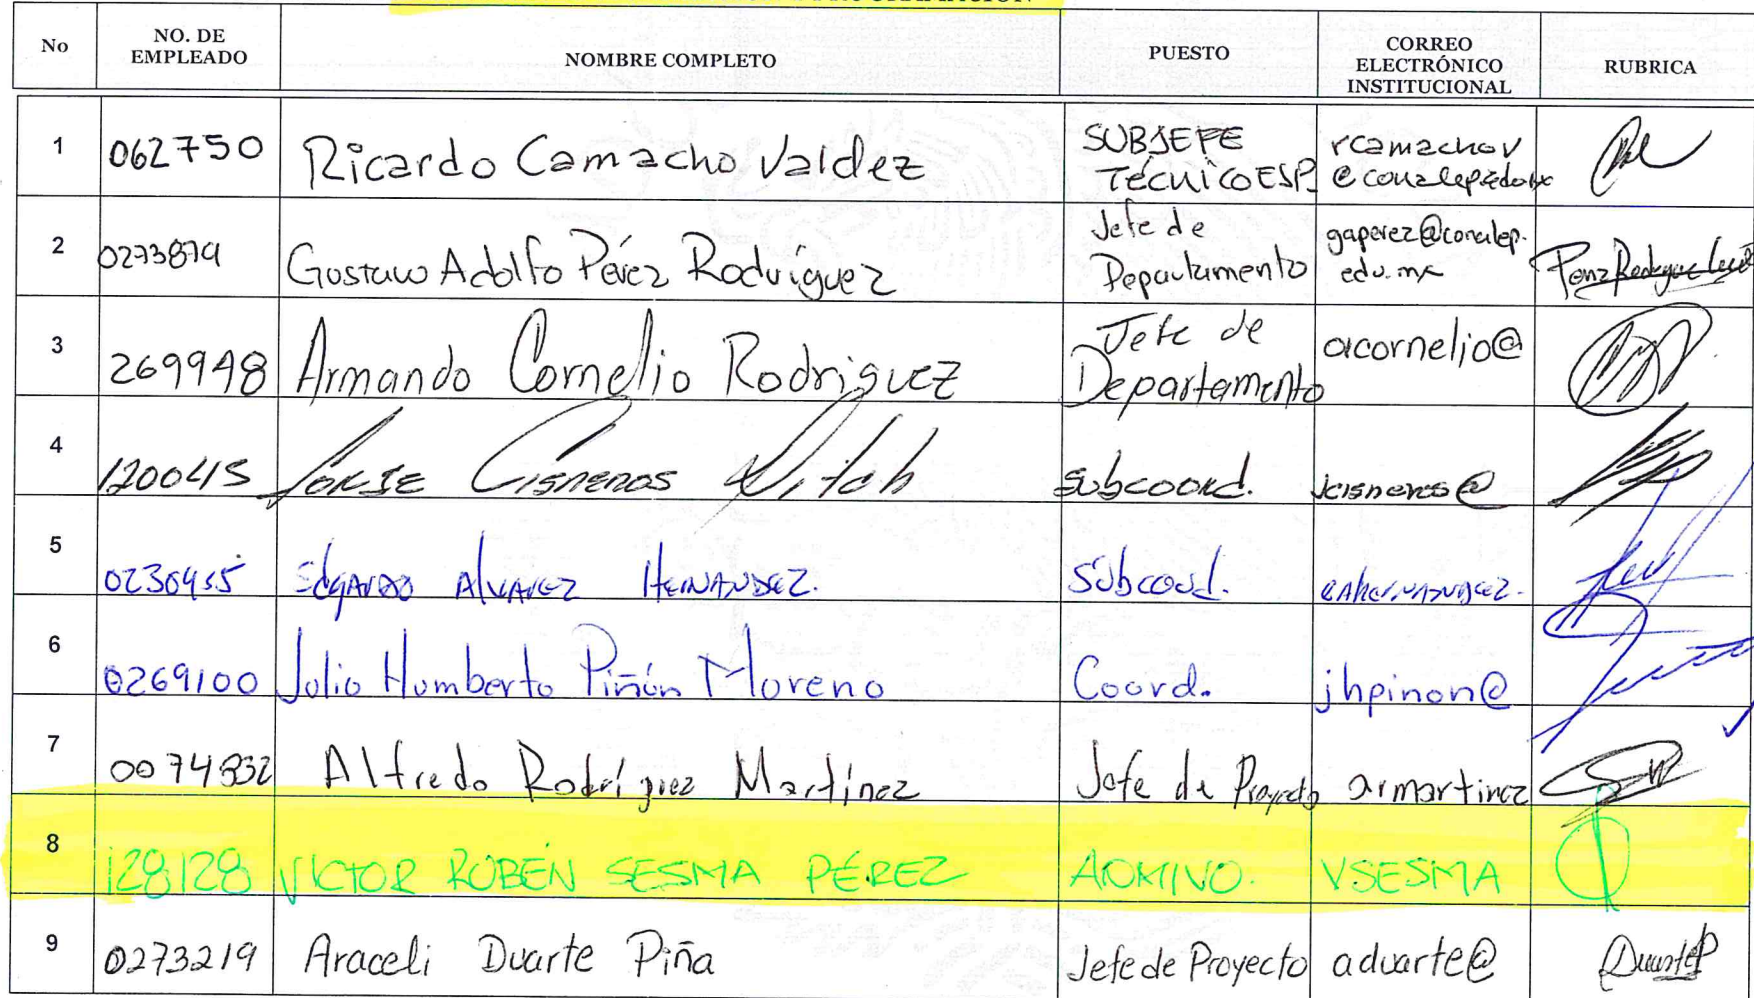 No NO. DE EMPLEADO NOMBRE COMPLETO PUESTO CORREO ELECTRÓNICO INSTITUCIONAL RUBRICA
1 062750 Ricardo Camacho Valdez SUBJEFE TÉCNICO ESP. rcamachov
2 0273879 Gustavo Adolfo Pérez Rodríguez Jefe de Departamento gaperez@conalep.edu.mx
3 269948 Armando Cornelio Rodriguez Jefe de Departamento acornelio@
4 1200415 JORGE CISNEROS subcoord. jcisneros@
5 EDGARDO ALVAREZ HERNANDEZ. Subcoord.
6 0269100 Julio Humberto Piñón Moreno Coord. jhpinon@
7 0074832 Alfredo Rodríguez Martínez Jefe de Proyecto armartinez
8 128128 VICTOR RUBÉN SESMA PÉREZ ADMIVO. VSESMA
9 0273219 Araceli Duarte Piña Jefe de Proyecto aduarte@